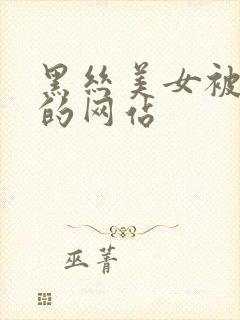 黑丝美女被
的网站
巫菁